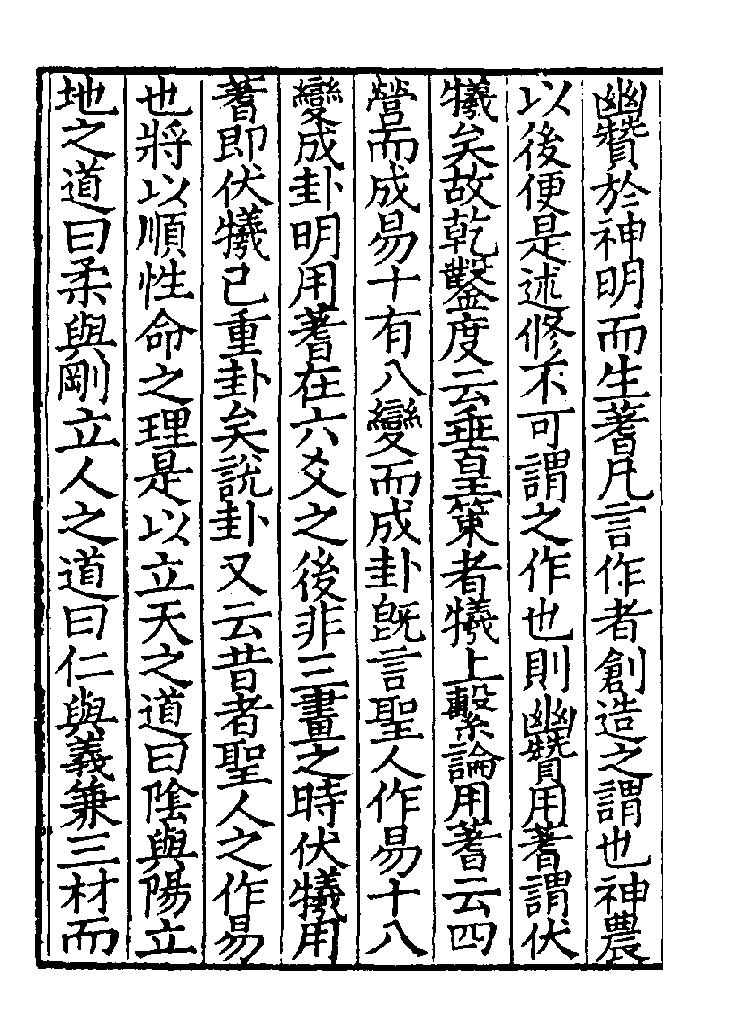 幽贊於神明而生蓍凡言作者創造之謂也神農
以後便是述修不可謂之作也則幽贊用蓍謂伏
犧矣故乾鑿度云垂皇策者犧上繫論用蓍云四
營而成易十有八變而成卦既言聖人作易十八
變成卦明用蓍在六爻之後非三畫之時伏犧用
蓍即伏犧已重卦矣說卦又云昔者聖人之作易
也將以順性命之理是以立天之道曰陰與陽立
地之道曰柔與剛立人之道曰仁與義兼三材而